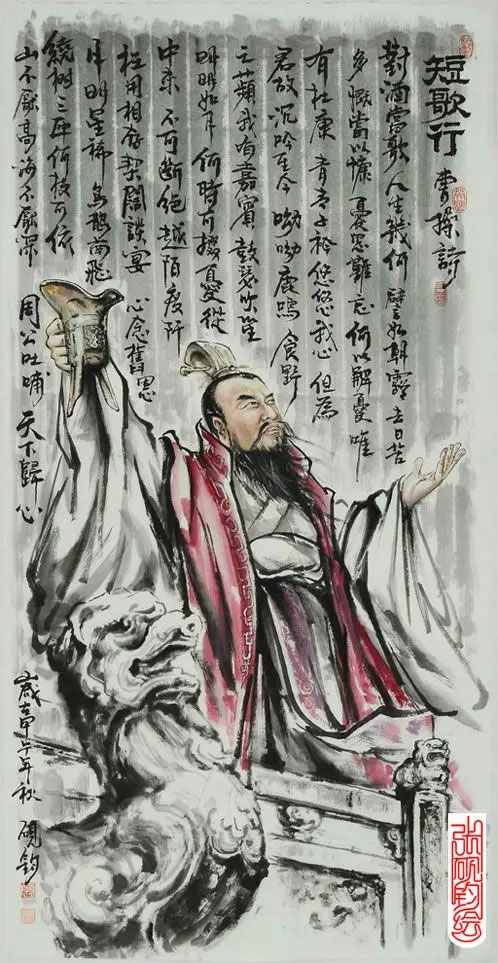 短歌行
曹操詩
對酒當歌人生幾何譬如朝露去日苦
多慨當以慷憂思難忘何以解憂唯
有杜康青青子衿悠悠我心但為
君故沉吟至今呦呦鹿鳴食野
之蘋我有嘉賓鼓瑟吹笙
明明如月何時可掇憂從
中來不可斷絕越陌度阡
枉用相存契闊談宴心念舊恩
月明星稀烏鵲南飛
繞樹三匝何枝可依
山不厭高海不厭深周公吐哺天下歸心
歲在甲午年秋硯鈞
张砚钧绘